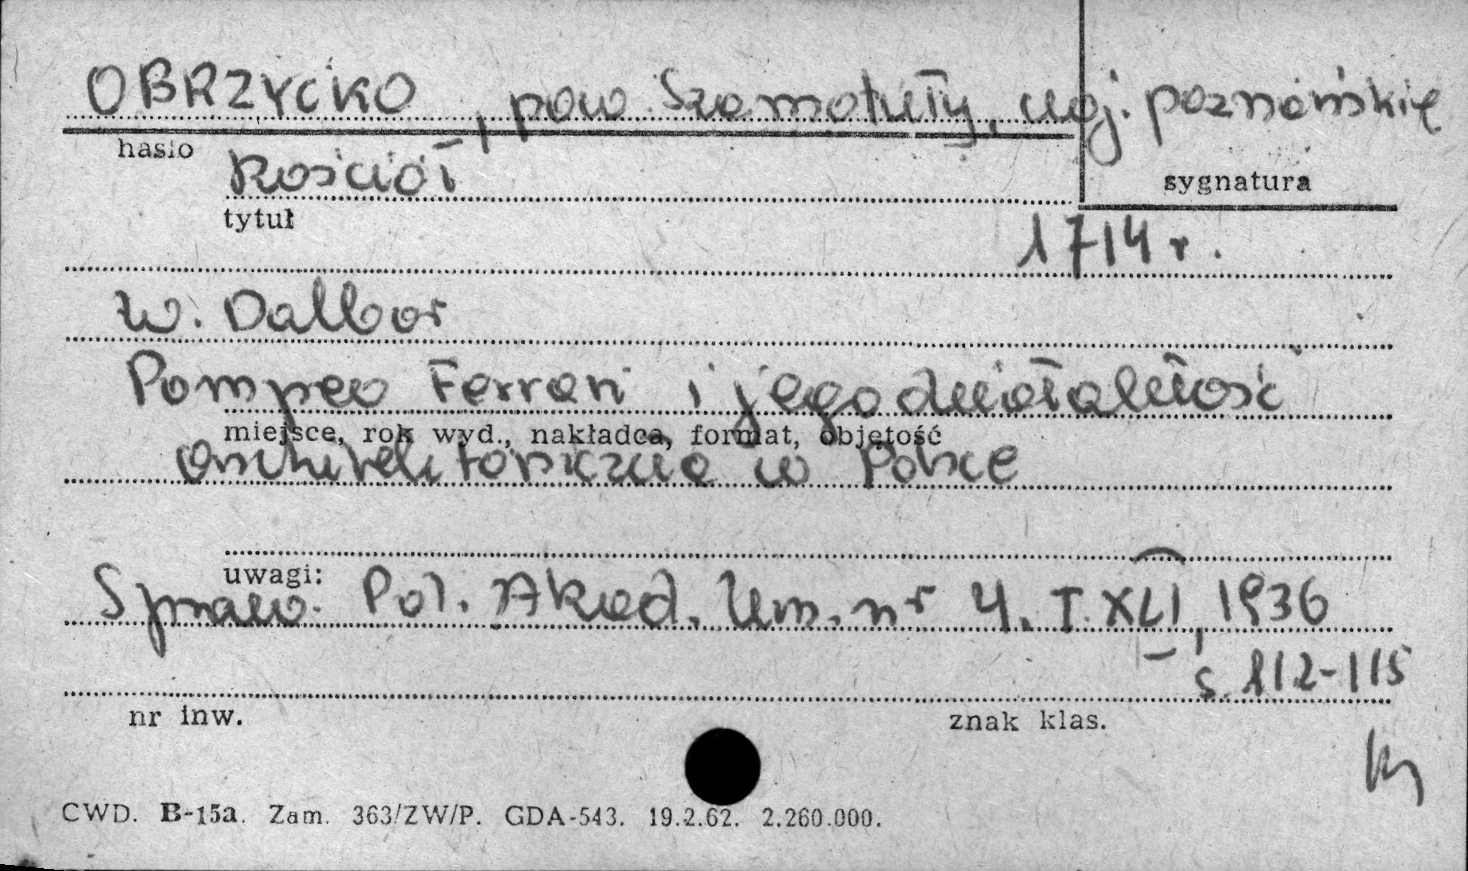 OBRZYCKO, pow. Szamotuły, woj. poznańskie
hasło
Kościół
sygnatura
tytuł
1714 r.
W. Dalbor
Pompeo Ferrari i jego działalność
miejsce, rok wyd., nakładca, format, objętość
architektoniczna w Polsce
uwagi:
Spraw. Pol. Akad. Um. nr 4. T. XLI, 1936
– s. 112-115
nr inw.
znak klas.
CWD. B-15a. Zam. 363/ZW/P. GDA-543. 19.2.62. 2.260.000.